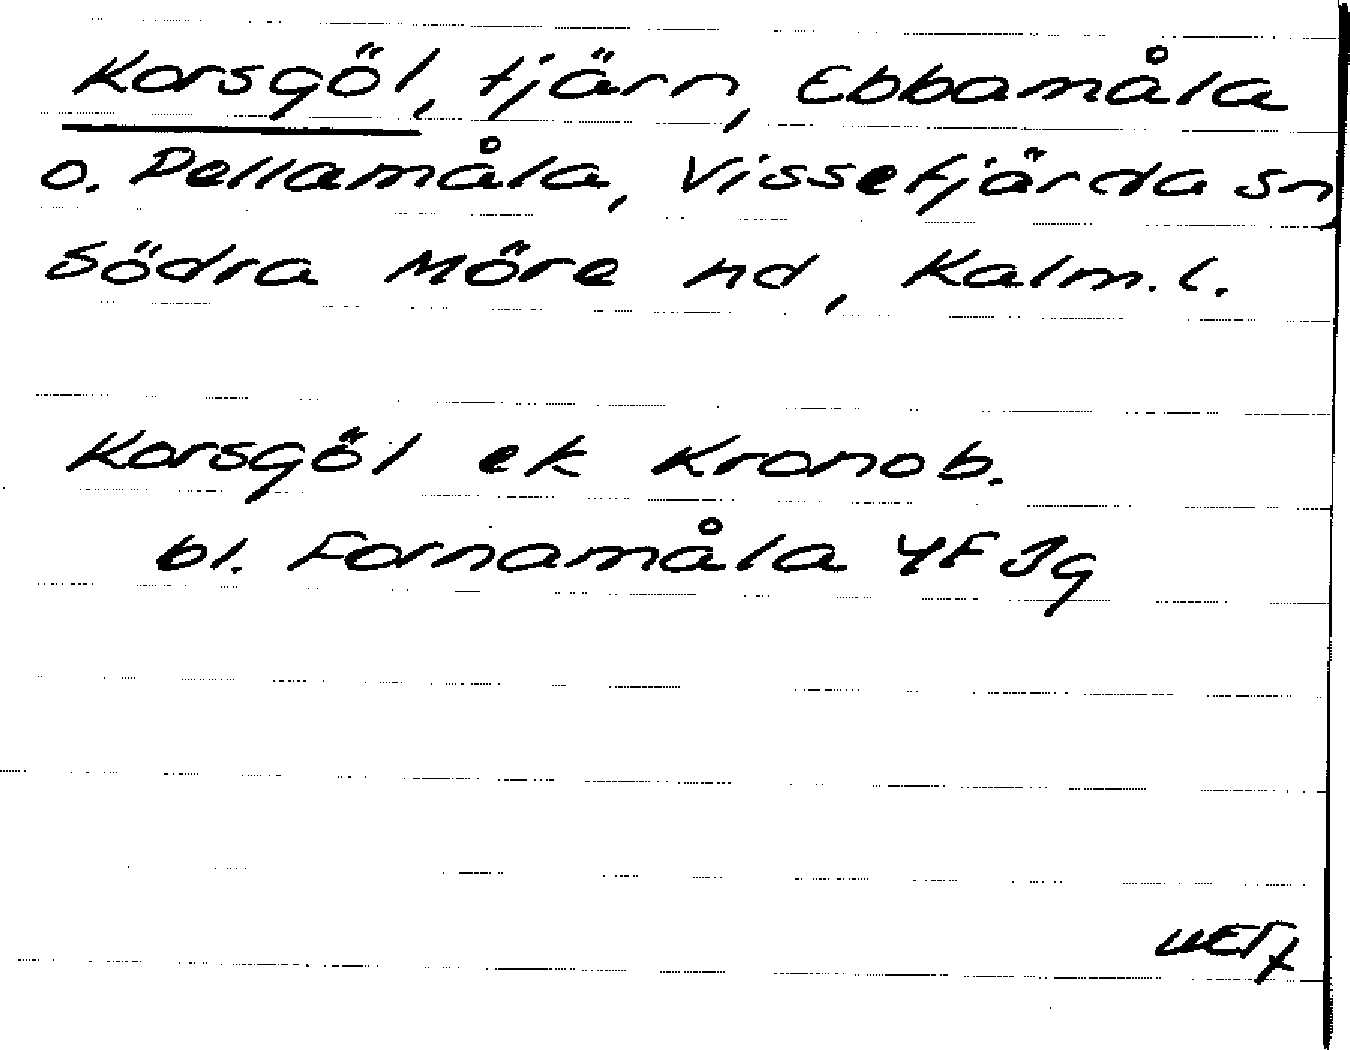 Korsgöl, tjärn, Ebbamåla
o. Pellamåla, Vissefjärda sn,
Södra Möre hd, Kalm. l.
Korsgöl ek Kronob.
bl. Fornamåla 4F Jg